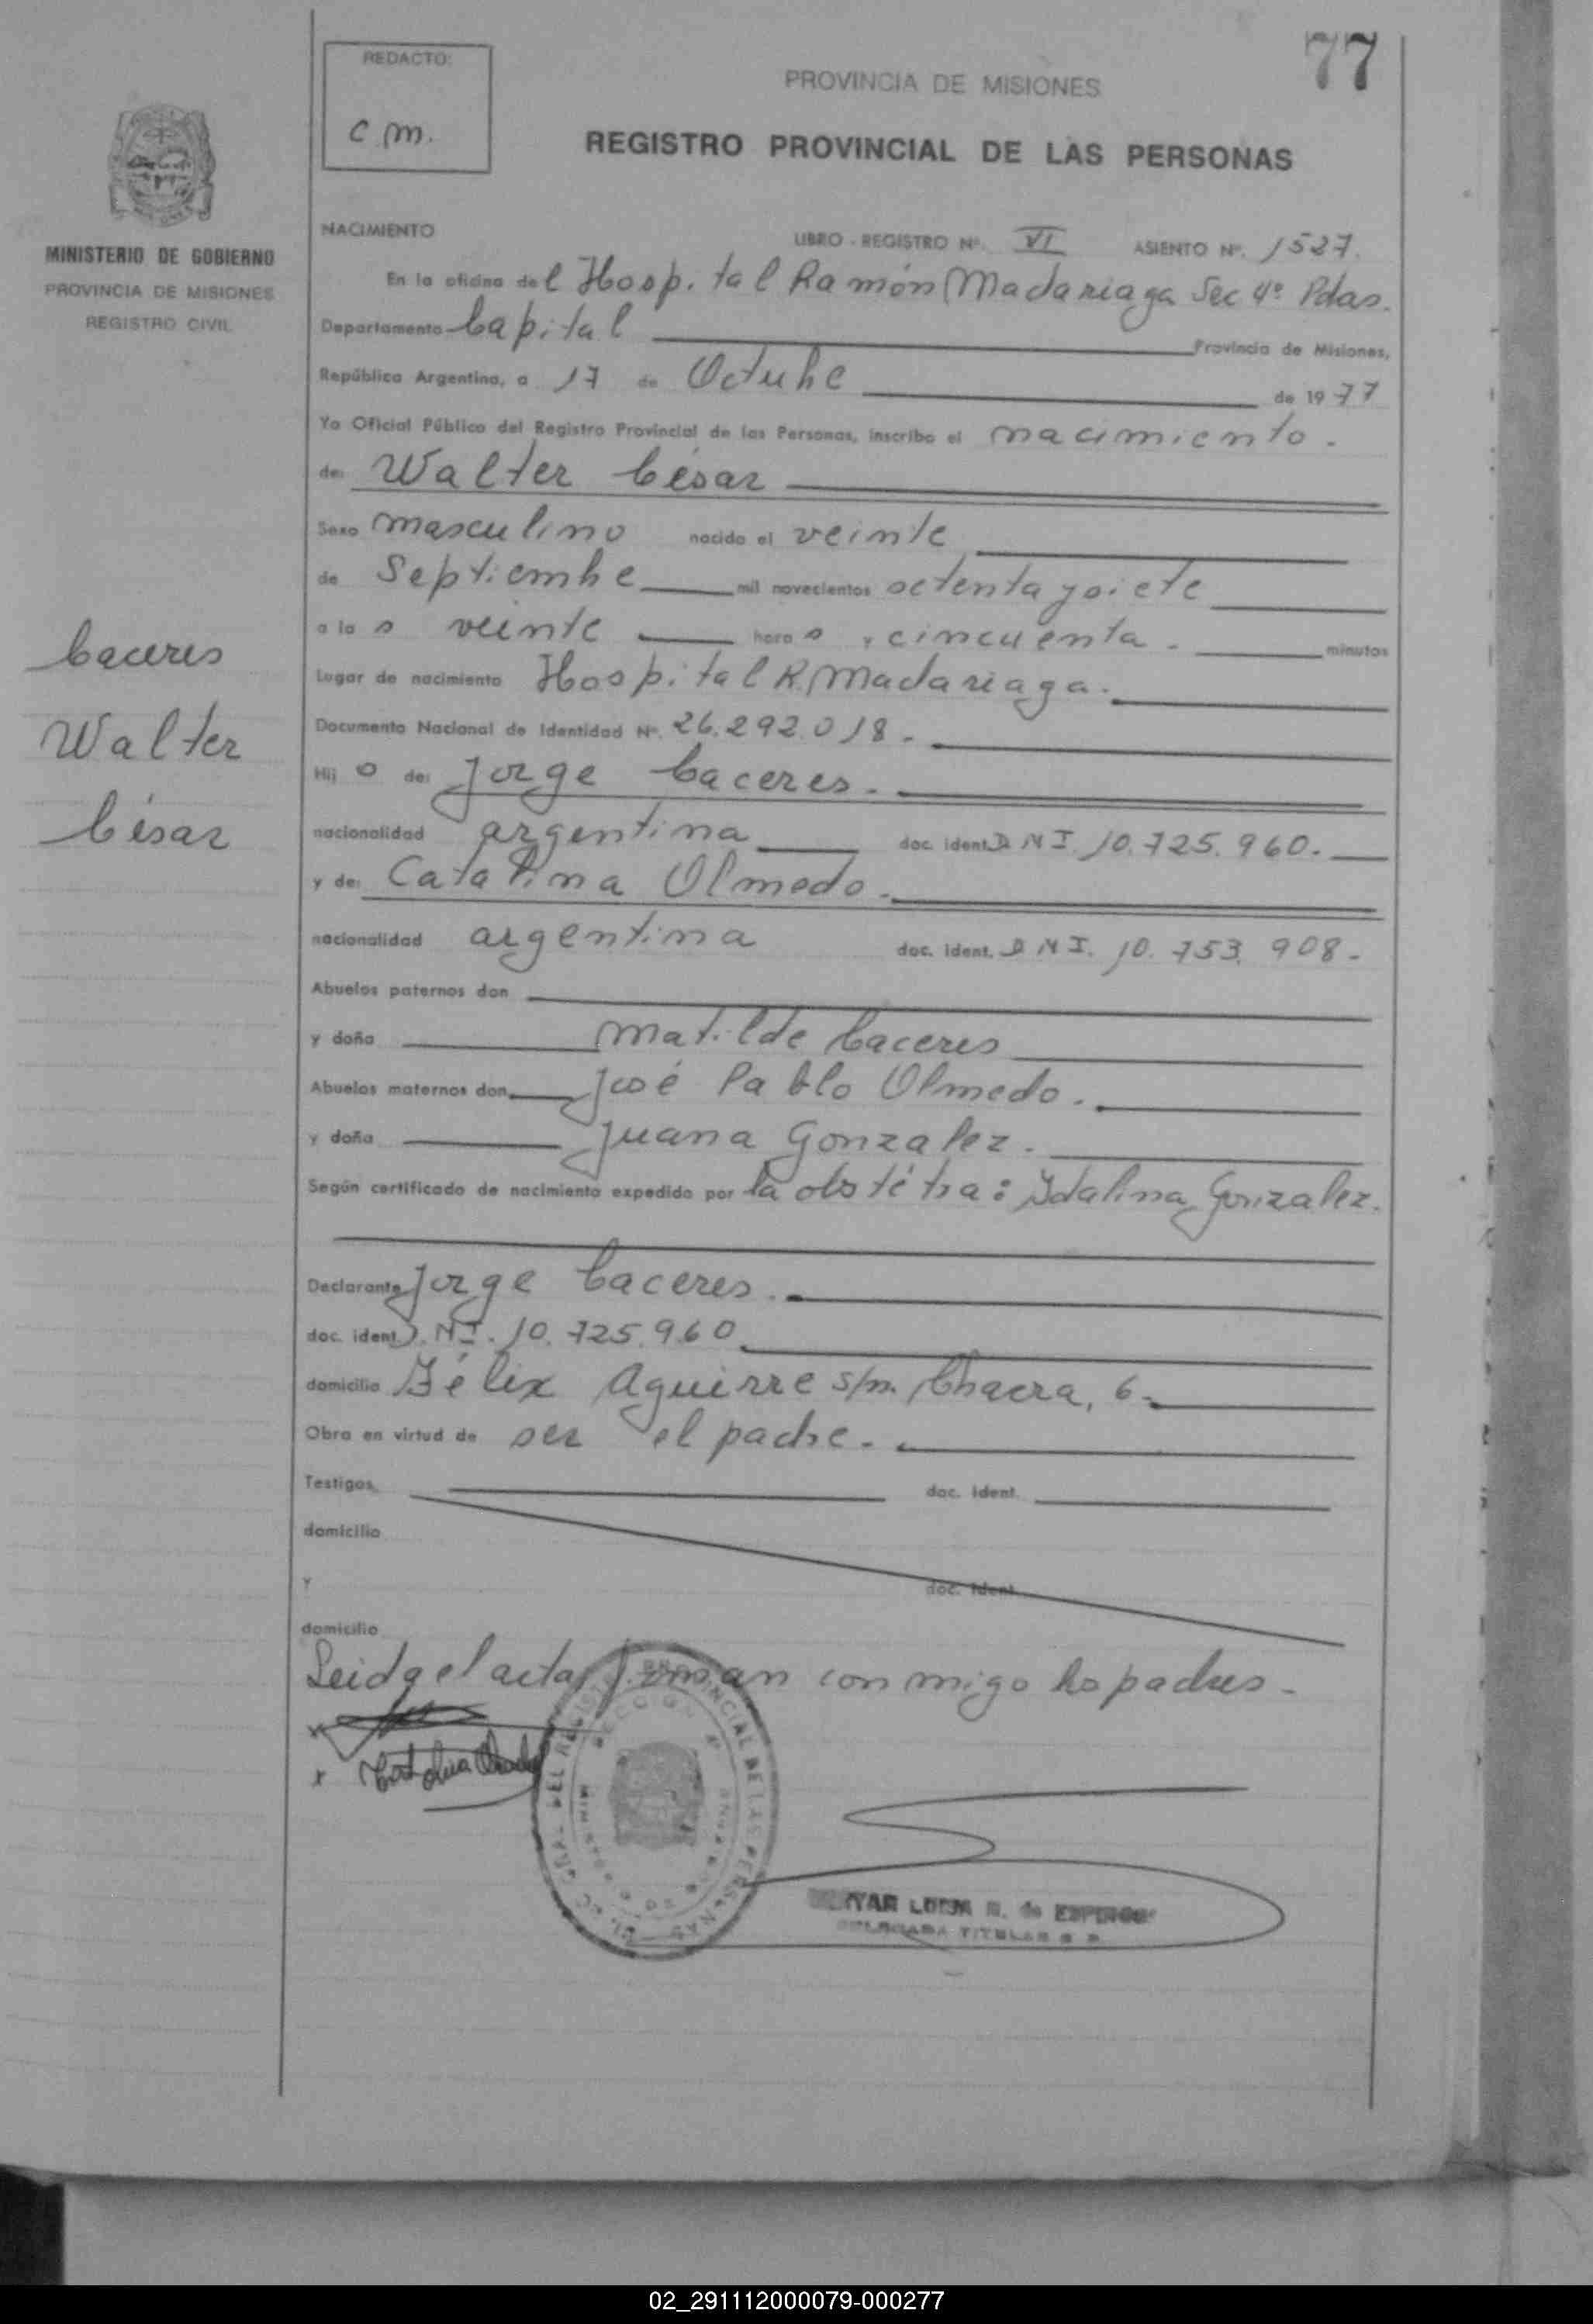 77
REDACTO:
C.M.
PROVINCIA DE MISIONES
REGISTRO PROVINCIAL DE LAS PERSONAS
MINISTERIO DE GOBIERNO
PROVINCIA DE MISIONES
REGISTRO CIVIL
NACIMIENTO LIBRO - REGISTRO Nº. VI ASIENTO Nº. 1527.
En la oficina del Hospital Ramón Madariaga Sec 4º Pdas.
Departamento Capital Provincia de Misiones,
República Argentina, a 17 de Octubre de 1977
Yo Oficial Público del Registro Provincial de las Personas, inscribo el nacimiento.
de: Walter César
Sexo masculino nacido el veinte
de Septiembre mil novecientos setenta y siete
a las veinte horas y cincuenta. minutos
Lugar de nacimiento Hospital R. Madariaga.
Documento Nacional de Identidad Nº. 26.292.018.
Hijo de: Jorge Caceres.
nacionalidad argentina doc. ident. D.N.I. 10.725.960.
y de: Catalina Olmedo.
nacionalidad argentina doc. ident. D.N.I. 10.753.908.
Abuelos paternos don
y doña Matilde Caceres
Abuelos maternos don José Pablo Olmedo.
y doña Juana Gonzalez.
Según certificado de nacimiento expedido por la obstétra: Idalina Gonzalez.
Declarante Jorge Caceres.
doc. ident D.N.I. 10.725.960
domicilio Félix Aguirre s/n. Chacra, 6.
Obra en virtud de ser el padre.
Testigos doc. ident.
domicilio
Y doc. ident.
domicilio
Leida el acta, firman conmigo los padres.
x
x
DEL REGISTRO PROVINCIAL DE LAS PERSONAS
SECCION
LUISA R. de
DELEGADA TITULAR
Caceres
Walter
César
02_291112000079-000277